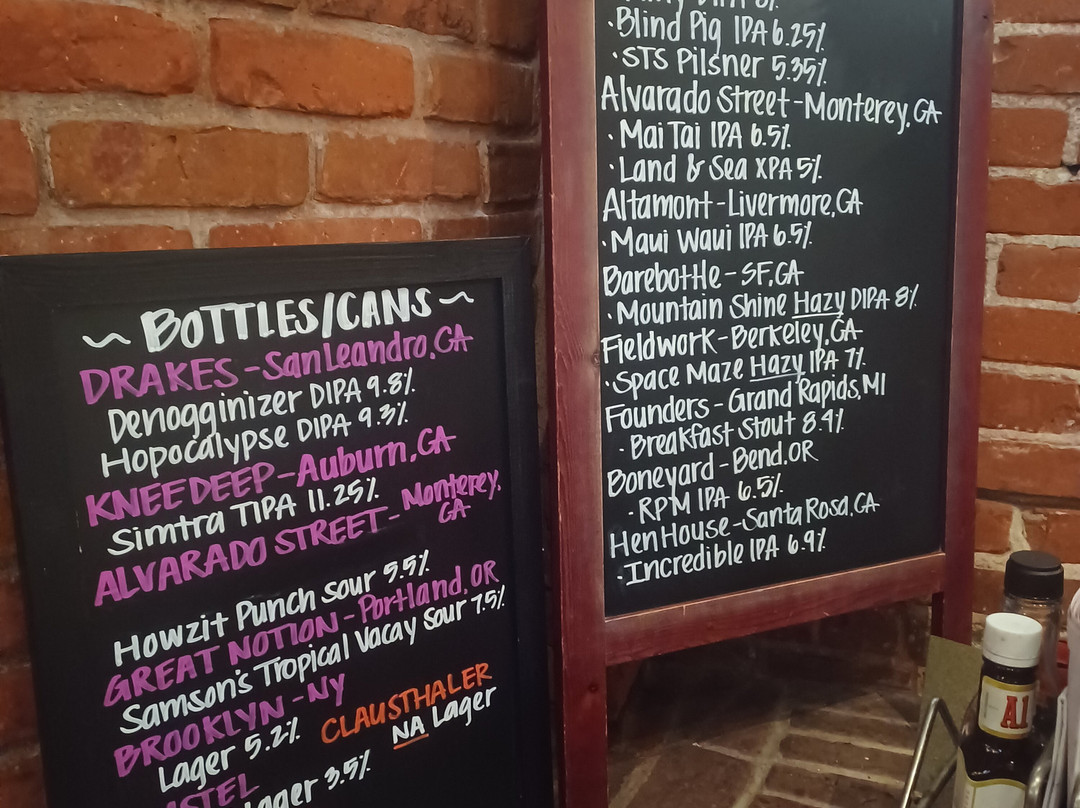 ~ BOTTLES/CANS ~
DRAKES - San Leandro, CA
Denogginizer DIPA 9.8%
Hopocalypse DIPA 9.3%
KNEEDEEP - Auburn, CA
Simtra TIPA 11.25%
ALVARADO STREET - Monterey, CA
Howzit Punch Sour 5.5%
GREAT NOTION - Portland, OR
Samson's Tropical Vacay Sour 7.5%
BROOKLYN - NY
Lager 5.2%
CLAUSTHALER
NA Lager
Lager 3.5%
· Blind Pig IPA 6.25%
· STS Pilsner 5.35%
Alvarado Street - Monterey, CA
· Mai Tai IPA 6.5%
· Land & Sea XPA 5%
Altamont - Livermore, CA
· Maui Waui IPA 6.5%
Barebottle - SF, CA
· Mountain Shine Hazy DIPA 8%
Fieldwork - Berkeley, CA
· Space Maze Hazy IPA 7%
Founders - Grand Rapids, MI
· Breakfast Stout 8.4%
Boneyard - Bend, OR
· RPM IPA 6.5%
HenHouse - Santa Rosa, CA
· Incredible IPA 6.9%
A1